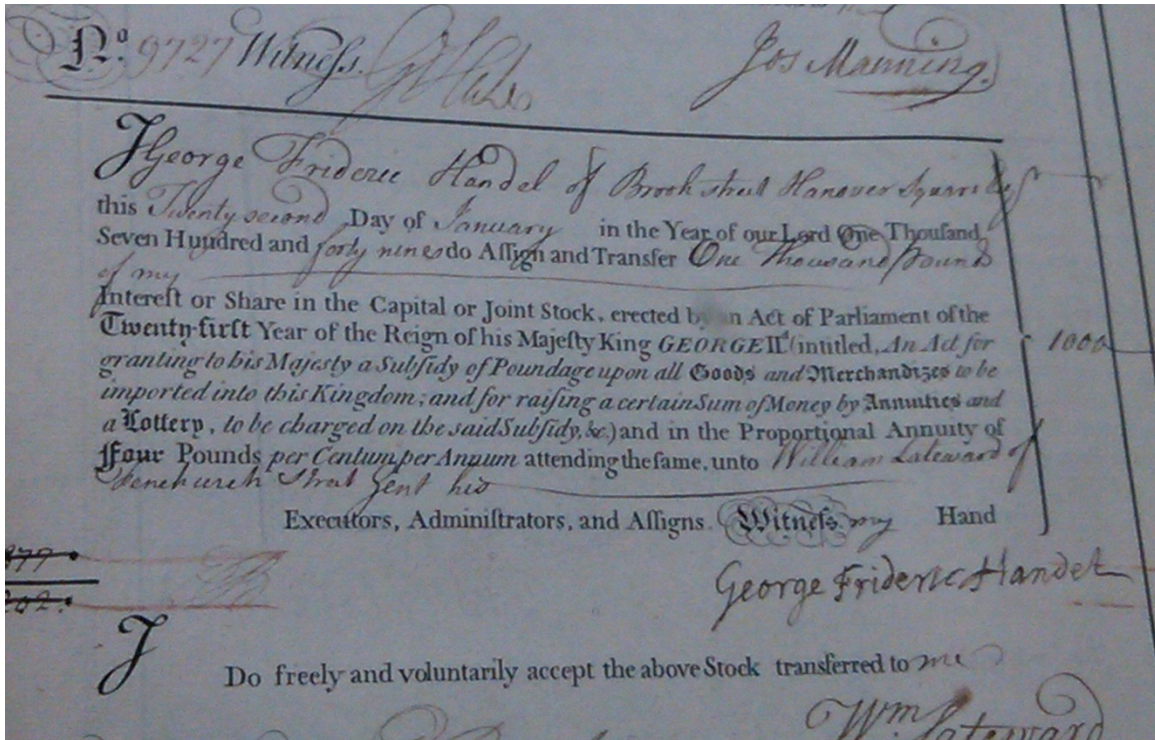 Jos Manning.
No. 9727 Witneſs.
I George Frideric Handel of Brook street Hanover Square Esqr
this Twenty second Day of January in the Year of our Lord One Thouſand
Seven Hundred and forty nine do Aſſign and Transfer One Thousand Pounds
of my
Intereſt or Share in the Capital or Joint Stock, erected by an Act of Parliament of the
Twenty-firſt Year of the Reign of his Majeſty King GEORGE IId. (intitled, An Act for 1000
granting to his Majeſty a Subſidy of Poundage upon all Goods and Merchandizes to be
imported into this Kingdom; and for raiſing a certain Sum of Money by Annuities and
a Lottery, to be charged on the said Subſidy, &c.) and in the Proportional Annuity of
Four Pounds per Centum per Annum attending the ſame, unto William Lateward of
Fenchurch Street Gent his
Executors, Adminiſtrators, and Aſſigns. Witneſs my Hand
George Frideric Handel
I
Do freely and voluntarily accept the above Stock transferred to me
Wm Lateward